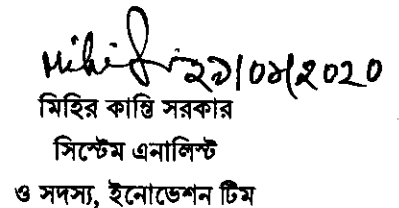 ২৯/০৯/২০২০
মিহির কান্তি সরকার
সিস্টেম এনালিস্ট
ও সদস্য, ইনোভেশন টিম